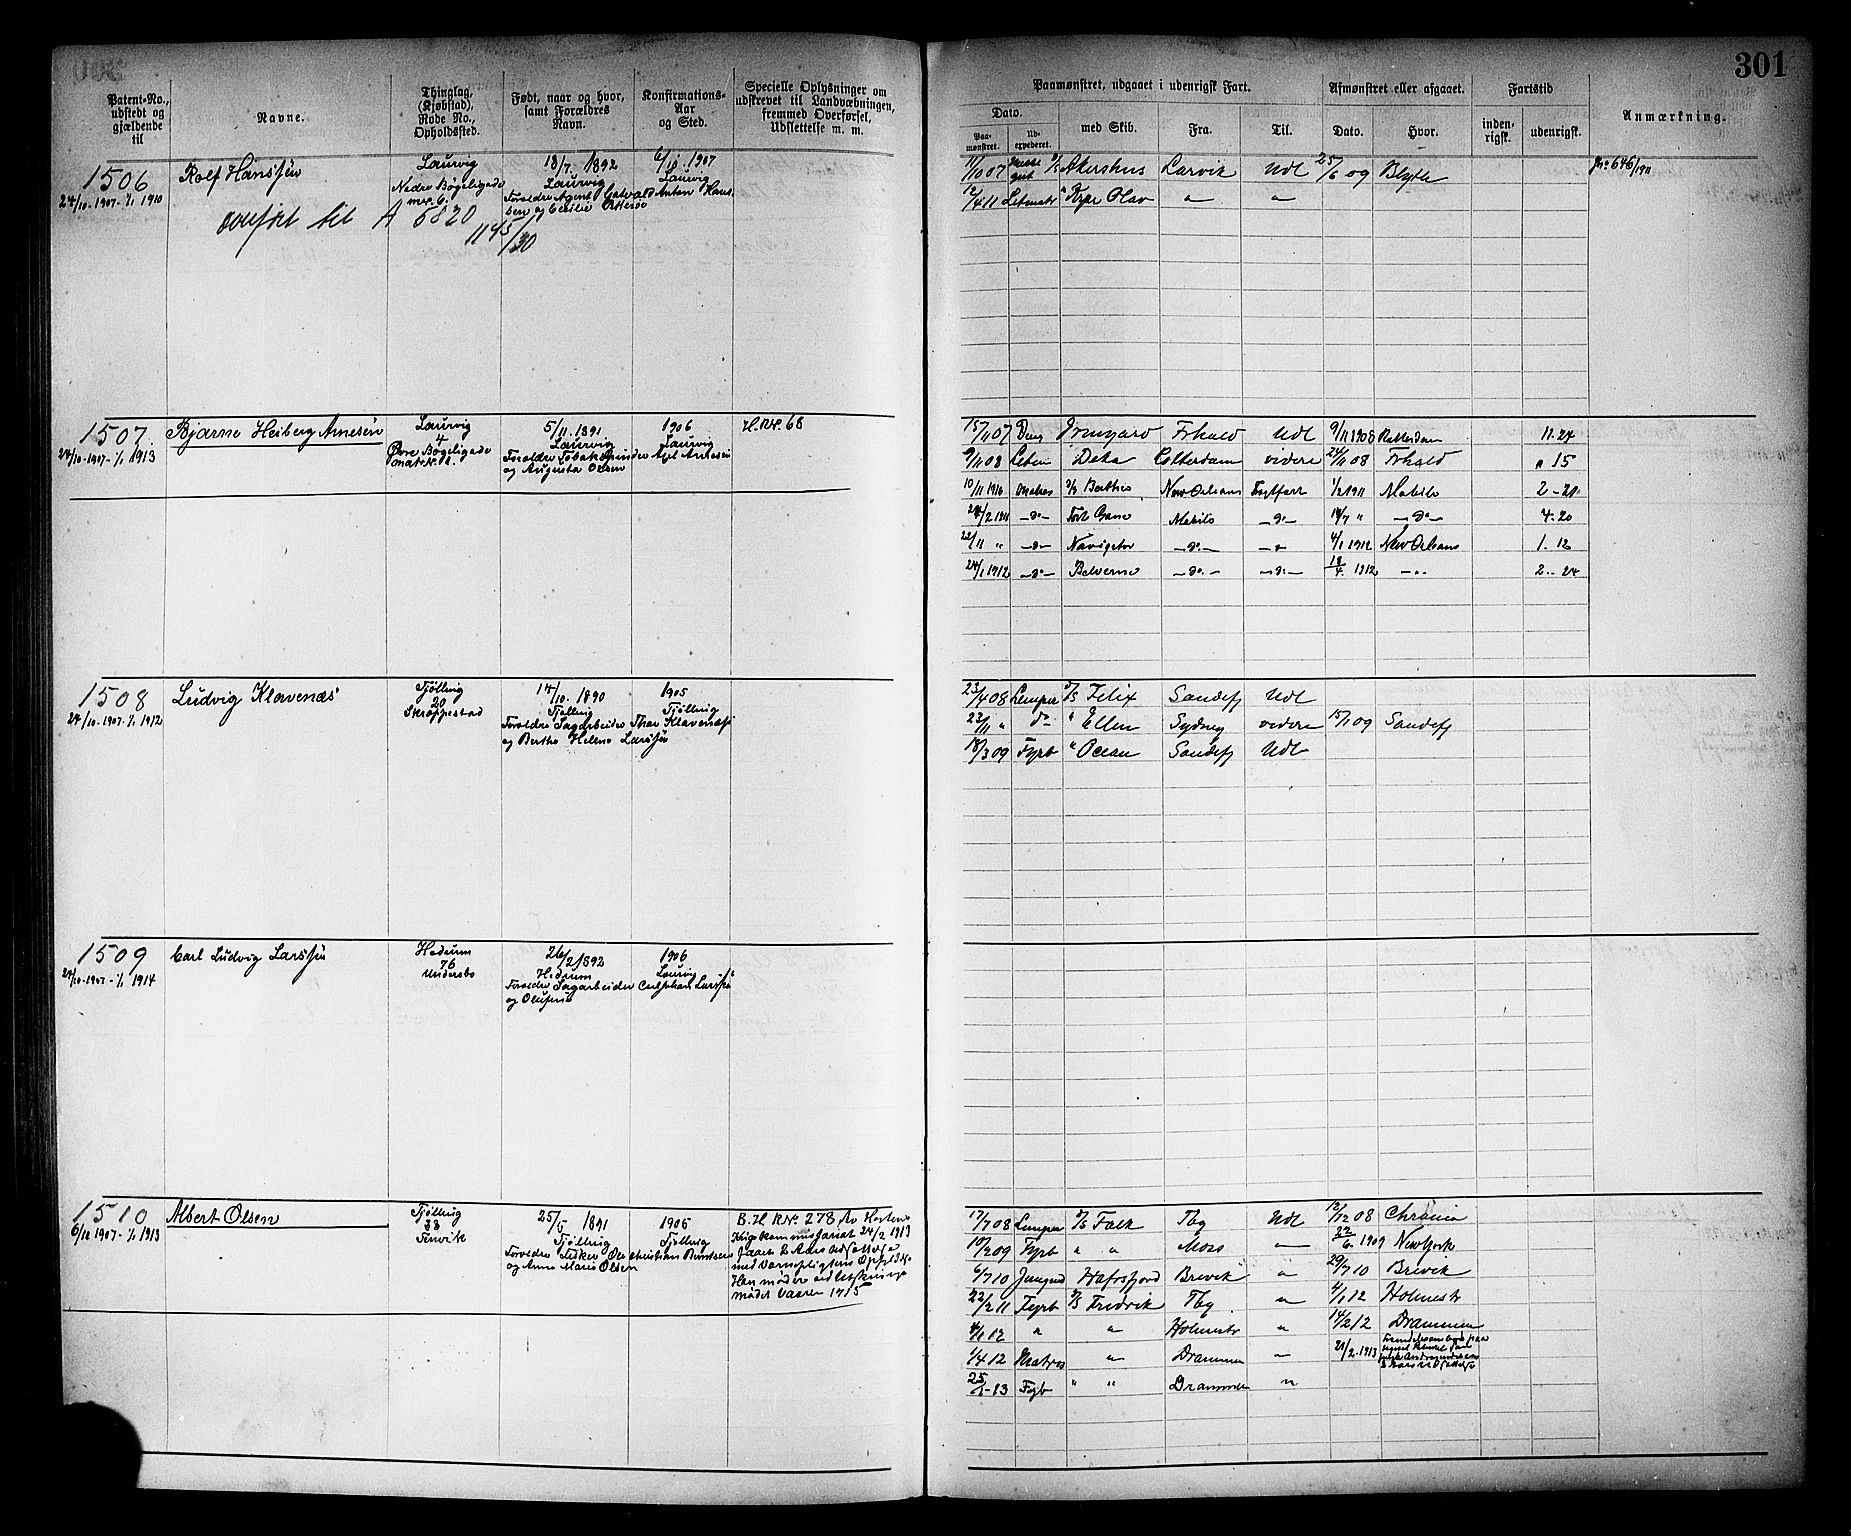 301
Patent-No., udstedt og gjældende til
Navne.
Thinglag, (Kjøbstad), Rode No., Opholdssted.
Født, naar og hvor, samt Forældres Navn.
Konfirmations- Aar og Sted.
Specielle Oplysninger om udskrevet til Landvæbningen, fremmed Overførsel, Udslettelse m. m.
Paamønstret, udgaaet i udenrigsk Fart.
Dato.
Paa- mønstret.
Ud- expederet.
med Skib.
Fra.
Til.
Afmønstret eller afgaaet.
Dato.
Hvor.
Fartstid
inden- rigsk.
udenrigsk.
Anmærkning.
1506
24/10-1907-1/1 1910
Rolf Hanssen
Laurvig
Nedre Bøgeligade
mno 6.
13/7. 1892
Laurvig
Forældre Agent Anton Hans-
sen og Cecilie
6/10.1907
Laurvig
overført til A 6820
1145/30
11/10 07 Akershus Larvik Udl 25/6 09 Blyth
12/4 11 Letmatr " Kong Olav " "
Jno 646/1911
1507
24/10-1907-1/1 1913
Bjarne Heiberg Arnesen
Laurvig
4
Øvre Bøgeligade
5/11.1891
Laurvig
Forældre Tobakspinder Axel Arnesen
og Augusta Olsen
1906
Laurvig
H.RN. 68
15/11 07 Dæg Irmgard Frhald Udl 9/11 1908 Rotterdam 11.24
9/11 08 Letm Deka Rotterdam videre 24/11 08 Frhald " 15
10/11 1910 Matros New Orleans Fragtfart 1/2 1911 Mobile 2-20
24/2 1911 -do- Mobile -do- 14/7 " -do- 4.20
22/11 " -do- Navigator -do- -do- 4/1 1912 New Orleans 1.12
24/1 1912 -do- Belverne -do- -do- 18/4. 1912 -"- 2-24
1508
24/10-1907-1/1 1912
Ludvig Klavenæs
Tjølling
20
Skreppestad
14/10. 1890
Tjølling
Forældre Sagarbeider Thor Klavenæs
og Berthe Helene Larssen
1905
Tjølling
23/4 08 Lemper D/S Felix Sandefj Udl
22/11 " do " Ellen Sydney videre 15/1 09 Sandefj
18/3 09 Fyrb " Ocean Sandefj Udl
1509
24/10-1907-1/1 1914
Carl Ludvig Larssen
Hedrum
76
Undersbo
26/2 1892
Hedrum
Forældre Sagarbeider Carl Johan Larssen
og Olufine
1906
Laurvig
1510
6/12 1907-1/1 1913
Albert Olsen
Tjølling
33
Fervik
25/5 1891
Tjølling
Forældre Fisker Ole Christian Berntsen
og Anne Marie Olsen
1906
Tjølling
B.H RNo. 278 Av Horten
Krigskommissariat 24/2 1913
faaet 2 Aars Udsættelse
med Værnepligtens Opfyldelse
Han møder ved Udskrivnings
mødet Vaaren 1915
17/7 08 Lemper D/S Falk Tbg Udl 12/12 08 Chrania
10/2 09 Fyrb " " Moss " 22/6. 1909 New York
6/7 10 Jungmd Hafrsfjord Brevik " 29/7 10 Brevik
22/2 11 Fyrb D/S Fredrik Tbg " 4/1 12 Holmestr
4/1 12 " " Holmestr " 14/2 12 Drammen
1/4 12 Matros " Drammen " 21/2.1913
25/1-13 Fyrb " " Drammen "